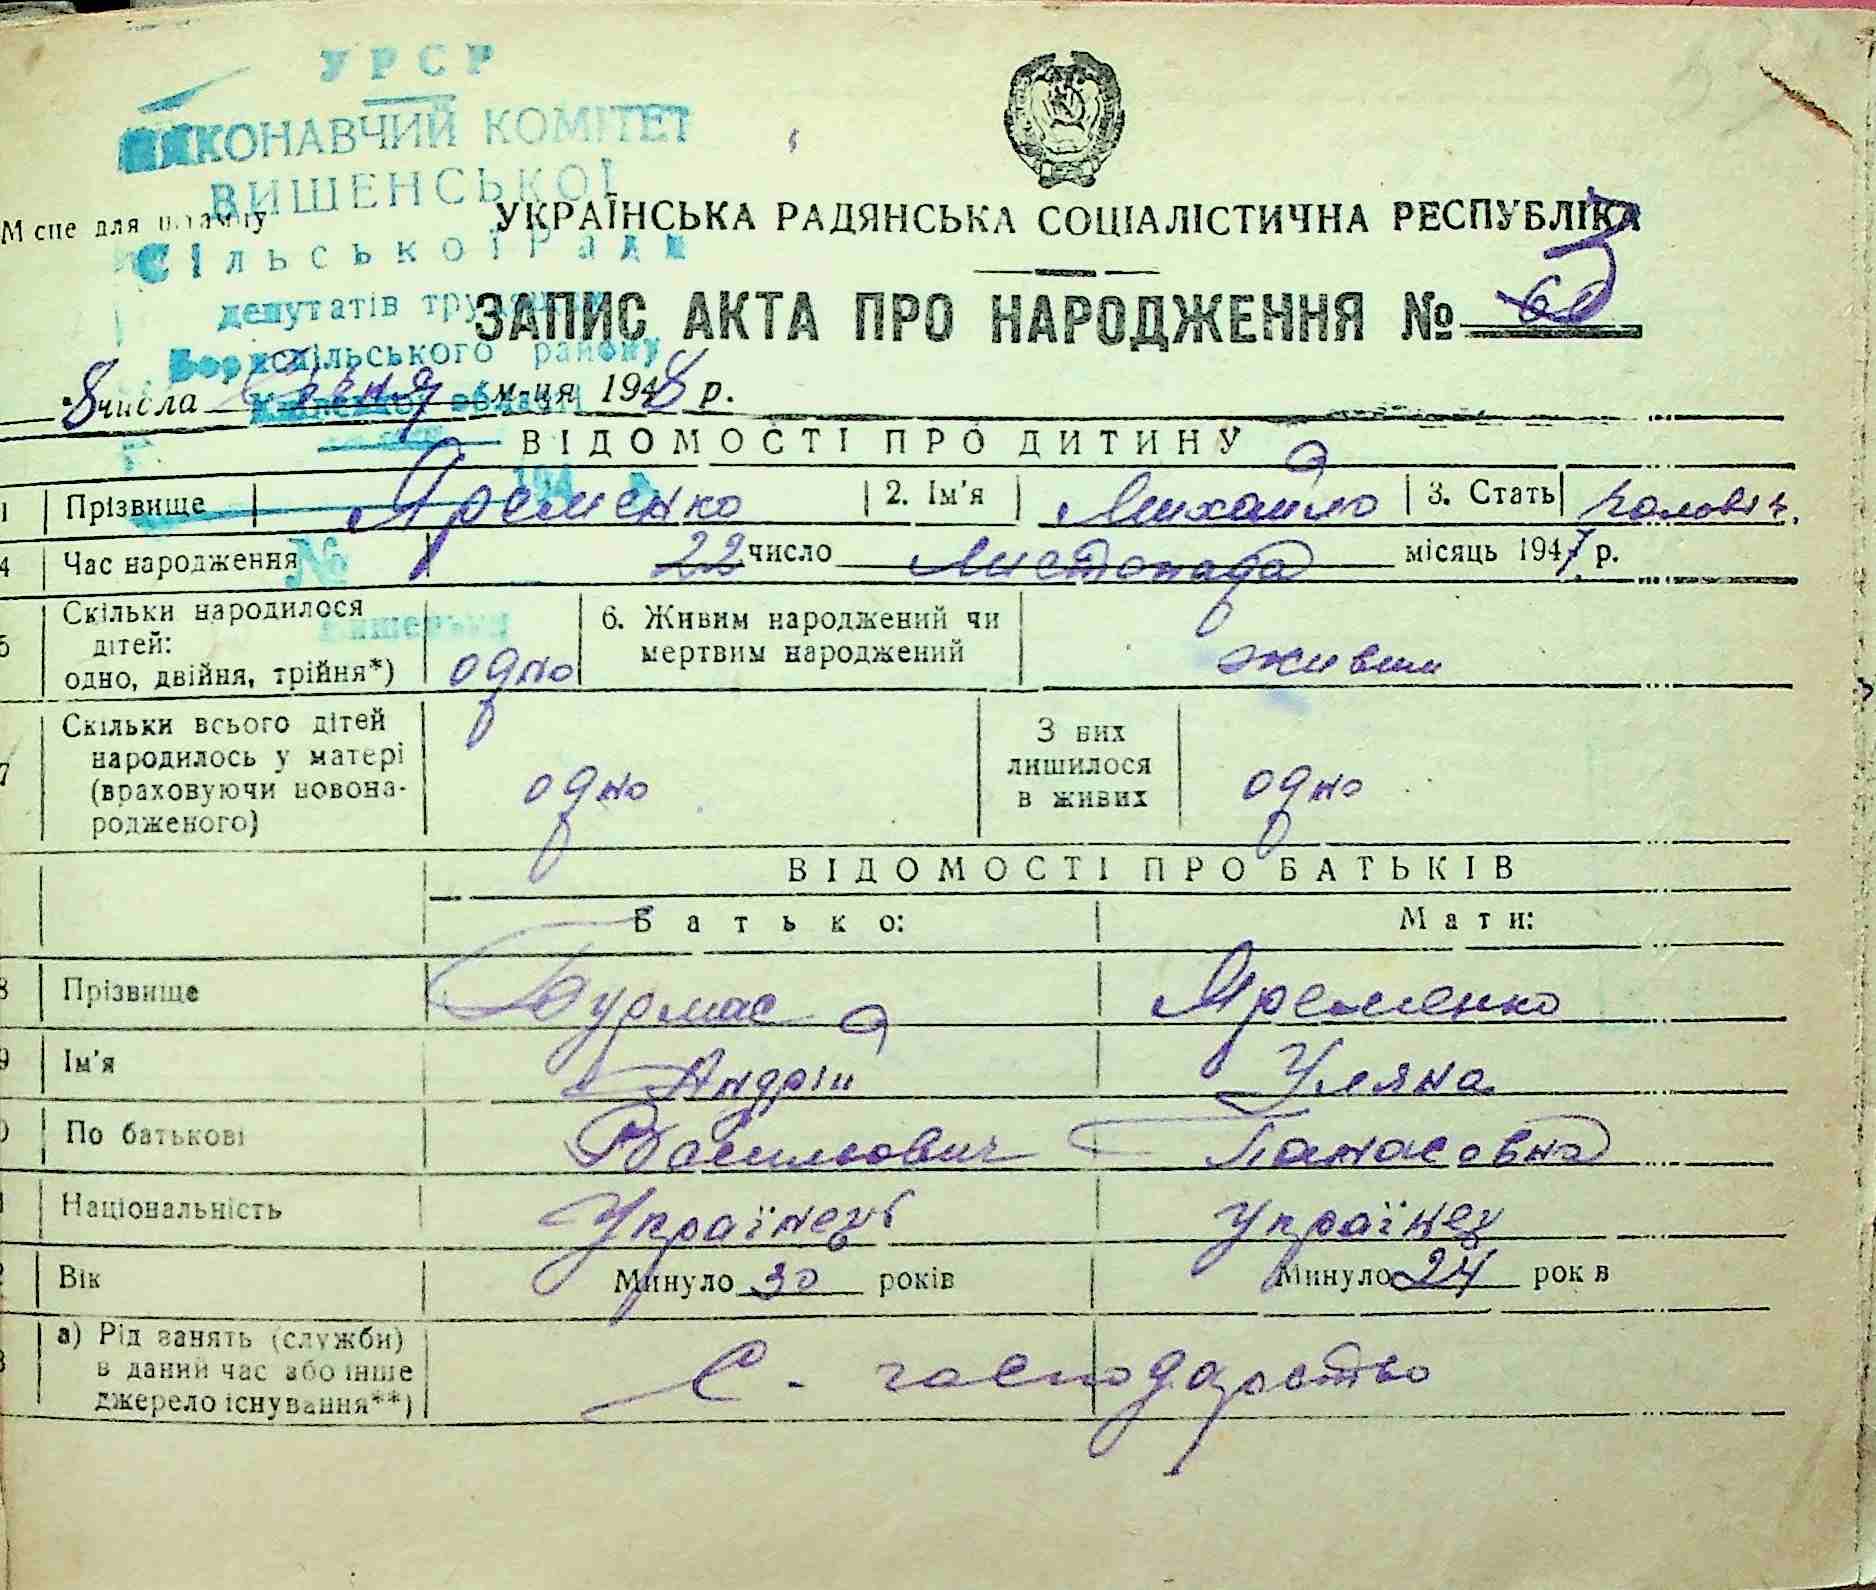 УРСР
ВИКОНАВЧИЙ КОМІТЕТ
ВИШЕНСЬКОЇ
Місце для штампу
УКРАЇНСЬКА РАДЯНСЬКА СОЦІАЛІСТИЧНА РЕСПУБЛІКА
Сільської Ради
депутатів трудящих
ЗАПИС АКТА ПРО НАРОДЖЕННЯ № 3
Бориспільського району
8 числа січня м-ця 1948 р.
Київської області
ВІДОМОСТІ ПРО ДИТИНУ
194 р.
1 Прізвище Яременко 2. Ім'я Михайло 3. Стать чоловіч.
4 Час народження 22 число Листопада місяць 1947 р.
№
5 Скільки народилося дітей: одно, двійня, трійня*) одно 6. Живим народжений чи мертвим народжений живим
7 Скільки всього дітей народилось у матері (враховуючи новонародженого) одно З них лишилося в живих одно
ВІДОМОСТІ ПРО БАТЬКІВ
Батько: Мати:
8 Прізвище Бурмас Яременко
9 Ім'я Андрій Уляна
По батькові Васильович Панасовна
Національність Українець Українец
Вік Минуло 30 років Минуло 24 років
а) Рід занять (служби) в даний час або інше джерело існування**) С - господарство